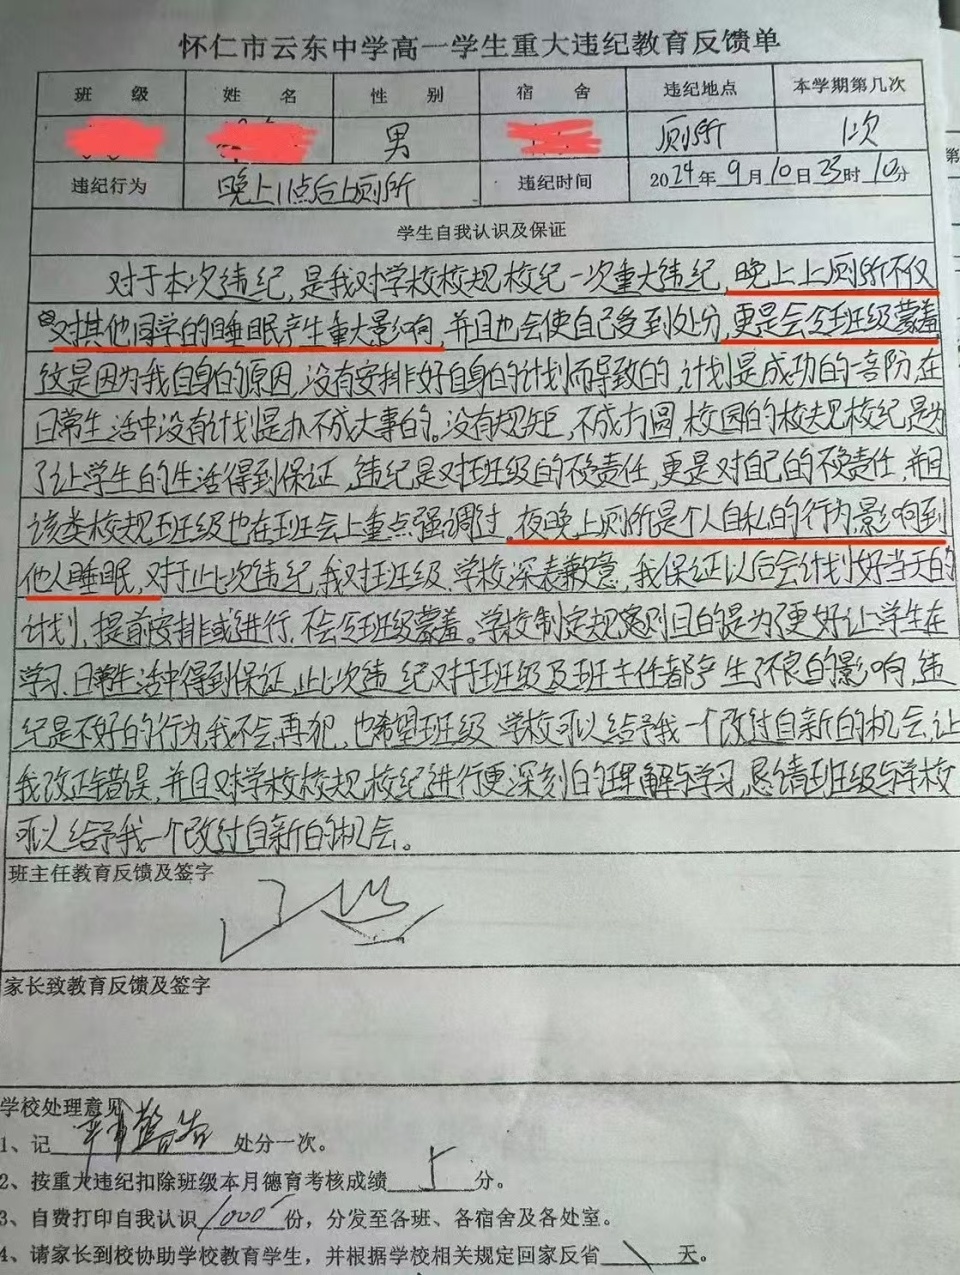 怀仁市云东中学高一学生重大违纪教育反馈单
班 级 姓 名 性 别 宿 舍 违纪地点 本学期第几次
男 厕所 1次
违纪行为 晚上11点后上厕所 违纪时间 2024年9月10日23时10分
学生自我认识及保证
对于本次违纪,是我对学校校规校纪一次重大违纪,晚上上厕所不仅
对其他同学的睡眠产生重大影响,并且也会使自己受到处分,更是会令班级蒙羞
这是因为我自身的原因,没有安排好自身的计划而导致的,计划是成功的一部份,在
日常生活中没有计划是办不成大事的。没有规矩,不成方圆,校园的校规校纪是为
了让学生的生活得到保证,违纪是对班级的不负责任,更是对自己的不负责任,并且
该类校规班级也在班会上重点强调过。夜晚上厕所是个人自私的行为,影响到
他人睡眠,对于此次违纪,我对班级、学校深表歉意,我保证以后会计划好当天的
计划,提前安排或进行,不会令班级蒙羞。学校制定规则目的是为了更好让学生在
学习、日常生活中得到保证,此次违纪对于班级及班主任都产生了不良的影响,违
纪是不好的行为,我不会再犯,也希望班级、学校可以给予我一个改过自新的机会,让
我改正错误,并且对学校校规、校纪进行更深刻的理解与学习,恳请班级与学校
可以给予我一个改过自新的机会。
班主任教育反馈及签字
家长致教育反馈及签字
学校处理意见
1、记 警告 处分一次。
2、按重大违纪扣除班级本月德育考核成绩 5 分。
3、自费打印自我认识 1000 份,分发至各班、各宿舍及各处室。
4、请家长到校协助学校教育学生,并根据学校相关规定回家反省 \ 天。